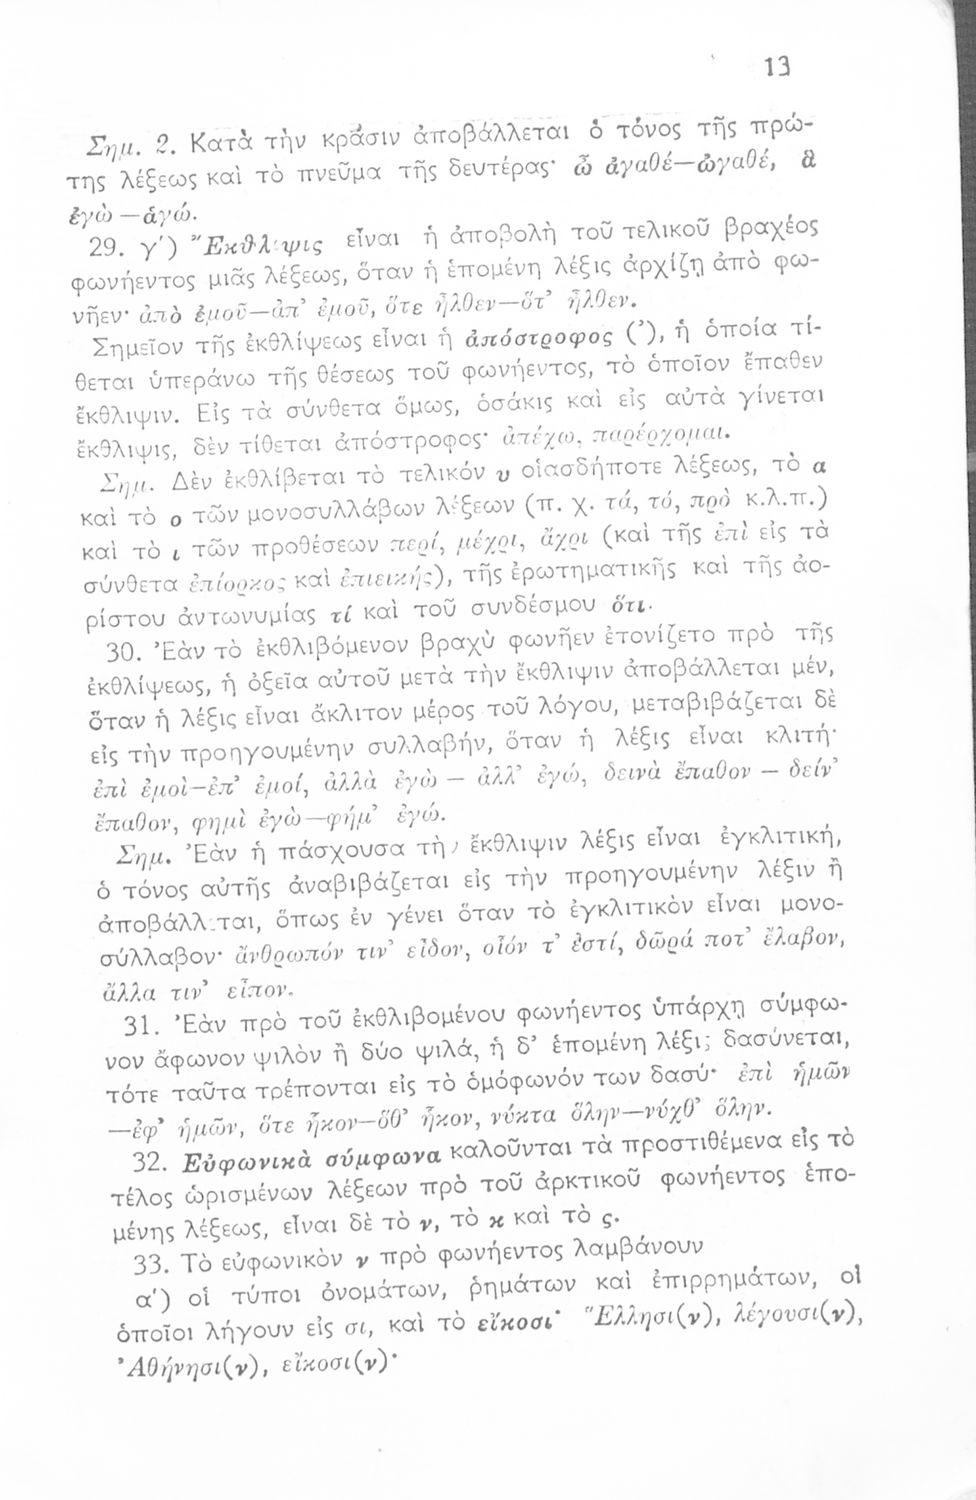 13
Σημ. 2. Κατὰ τὴν κρᾶσιν ἀποβάλλεται ὁ τόνος τῆς πρώ-
της λέξεως καὶ τὸ πνεῦμα τῆς δευτέρας· ὦ ἀγαθέ—ὠγαθέ, ἃ
ἐγὼ—ἁγώ.
29. γ') Ἔκθλιψις εἶναι ἡ ἀποβολὴ τοῦ τελικοῦ βραχέος
φωνήεντος μιᾶς λέξεως, ὅταν ἡ ἑπομένη λέξις ἀρχίζῃ ἀπὸ φω-
νῆεν· ἀπὸ ἐμοῦ—ἀπ’ ἐμοῦ, ὅτε ἦλθεν—ὅτ’ ἦλθεν.
Σημεῖον τῆς ἐκθλίψεως εἶναι ἡ ἀπόστροφος (’), ἡ ὁποία τί-
θεται ὑπεράνω τῆς θέσεως τοῦ φωνήεντος, τὸ ὁποῖον ἔπαθεν
ἔκθλιψιν. Εἰς τὰ σύνθετα ὅμως, ὁσάκις καὶ εἰς αὐτὰ γίνεται
ἔκθλιψις, δὲν τίθεται ἀπόστροφος· ἀπέχω, παρέρχομαι.
Σημ. Δὲν ἐκθλίβεται τὸ τελικόν υ οἱασδήποτε λέξεως, τὸ α
καὶ τὸ ο τῶν μονοσυλλάβων λέξεων (π. χ. τά, τό, πρὸ κ.λ.π.)
καὶ τὸ ι τῶν προθέσεων περί, μέχρι, ἄχρι (καὶ τῆς ἐπὶ εἰς τὰ
σύνθετα ἐπίορκος καὶ ἐπιεικής), τῆς ἐρωτηματικῆς καὶ τῆς ἀο-
ρίστου ἀντωνυμίας τί καὶ τοῦ συνδέσμου ὅτι.
30. Ἐὰν τὸ ἐκθλιβόμενον βραχὺ φωνῆεν ἐτονίζετο πρὸ τῆς
ἐκθλίψεως, ἡ ὀξεῖα αὐτοῦ μετὰ τὴν ἔκθλιψιν ἀποβάλλεται μέν,
ὅταν ἡ λέξις εἶναι ἄκλιτον μέρος τοῦ λόγου, μεταβιβάζεται δὲ
εἰς τὴν προηγουμένην συλλαβήν, ὅταν ἡ λέξις εἶναι κλιτή·
ἐπὶ ἐμοὶ—ἐπ’ ἐμοί, ἀλλὰ ἐγὼ — ἀλλ’ ἐγώ, δεινὰ ἔπαθον — δείν’
ἔπαθον, φημὶ ἐγὼ—φήμ’ ἐγώ.
Σημ. Ἐὰν ἡ πάσχουσα τὴν ἔκθλιψιν λέξις εἶναι ἐγκλιτική,
ὁ τόνος αὐτῆς ἀναβιβάζεται εἰς τὴν προηγουμένην λέξιν ἢ
ἀποβάλλεται, ὅπως ἐν γένει ὅταν τὸ ἐγκλιτικὸν εἶναι μονο-
σύλλαβον· ἄνθρωπόν τιν’ εἶδον, οἷόν τ’ ἐστί, δῶρά ποτ’ ἔλαβον,
ἄλλα τιν’ εἶπον.
31. Ἐὰν πρὸ τοῦ ἐκθλιβομένου φωνήεντος ὑπάρχῃ σύμφω-
νον ἄφωνον ψιλὸν ἢ δύο ψιλά, ἡ δ’ ἑπομένη λέξις δασύνεται,
τότε ταῦτα τρέπονται εἰς τὸ ὁμόφωνόν των δασύ· ἐπὶ ἡμῶν
—ἐφ’ ἡμῶν, ὅτε ἧκον—ὅθ’ ἧκον, νύκτα ὅλην—νύχθ’ ὅλην.
32. Εὐφωνικὰ σύμφωνα καλοῦνται τὰ προστιθέμενα εἰς τὸ
τέλος ὡρισμένων λέξεων πρὸ τοῦ ἀρκτικοῦ φωνήεντος ἑπο-
μένης λέξεως, εἶναι δὲ τὸ ν, τὸ κ καὶ τὸ ς.
33. Τὸ εὐφωνικὸν ν πρὸ φωνήεντος λαμβάνουν
α') οἱ τύποι ὀνομάτων, ῥημάτων καὶ ἐπιρρημάτων, οἱ
ὁποῖοι λήγουν εἰς σι, καὶ τὸ εἴκοσι· Ἕλλησι(ν), λέγουσι(ν),
Ἀθήνησι(ν), εἴκοσι(ν)·